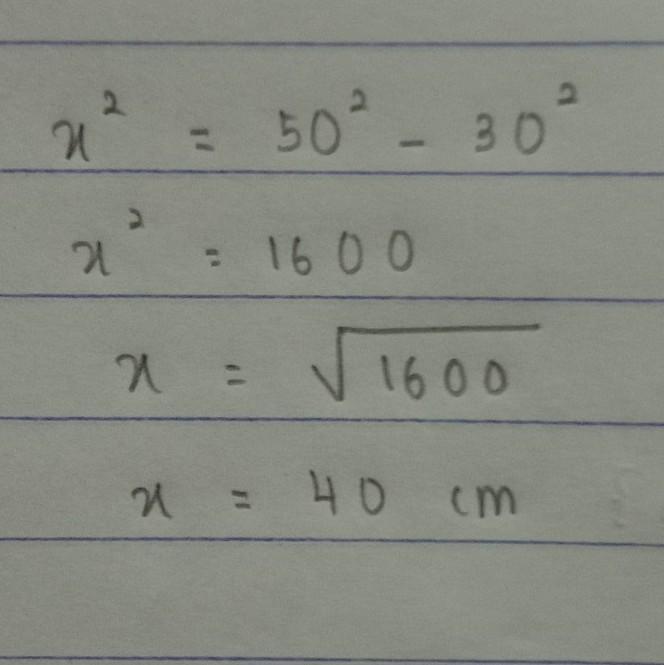 x² = 50² - 30²
x² = 1600
x = √1600
x = 40 cm